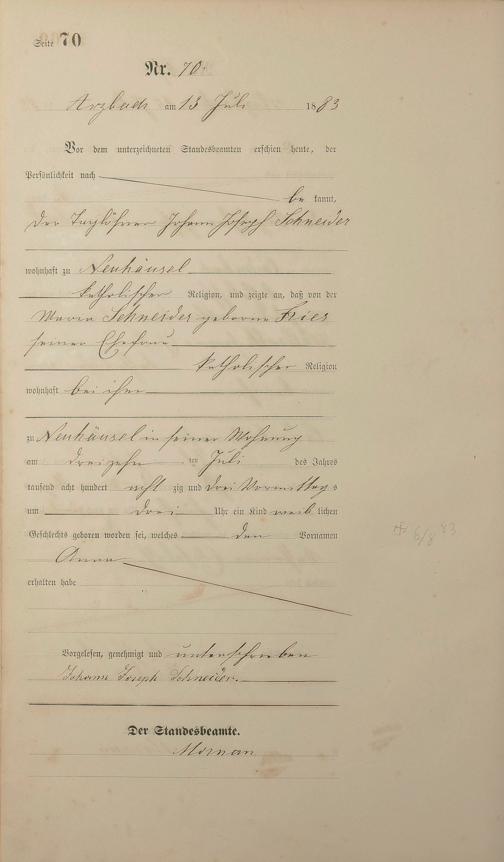 Seite 70
Nr. 70.
Arzbach am 13 Juli 1883
Vor dem unterzeichneten Standesbeamten erschien heute, der
Persönlichkeit nach
be kannt,
der Taglöhner Johann Joseph Schneider
wohnhaft zu Neuhäusel
katholischer Religion, und zeigte an, daß von der
Maria Schneider geborne Fries
seiner Ehefrau
katholischer Religion
wohnhaft bei ihm
zu Neuhäusel in seiner Wohnung
am dreizehn ten Juli des Jahres
tausend acht hundert acht zig und drei Vormittags
um drei Uhr ein Kind weib lichen
Geschlechts geboren worden sei, welches den Vornamen
Anna
erhalten habe
Vorgelesen, genehmigt und unterschrieben
Johann Joseph Schneider.
Der Standesbeamte.
6/8 83